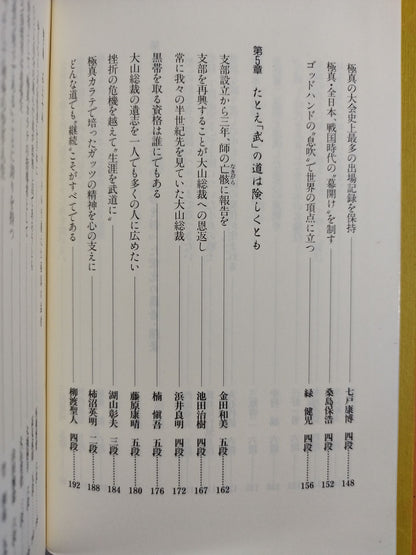 極真の大会史上最多の出場記録を保持──七戸康博 四段……148
極真・全日本、戦国時代の〝幕開け〟を制す──桑島保浩 四段……152
ゴッドハンドの〝息吹〟で世界の頂点に立つ──緑 健児 四段……156
第5章 たとえ「武」の道は険しくとも
支部設立から三年、師の亡骸に報告を──金田和美 五段……162
なきがら
支部を再興することが大山総裁への恩返し──池田治樹 四段……167
常に我々の半世紀先を見ていた大山総裁──浜井良明 四段……172
黒帯を取る資格は誰にでもある──楠 愼吾 五段……176
大山総裁の遺志を一人でも多くの人に広めたい──藤原康晴 五段……180
挫折の危機を越えて〝生涯を武道に〟──湖山彰夫 三段……184
極真カラテで培ったガッツの精神を心の支えに──柿沼英明 二段……188
どんな道でも〝継続〟こそがすべてである──柳渡聖人 四段……192